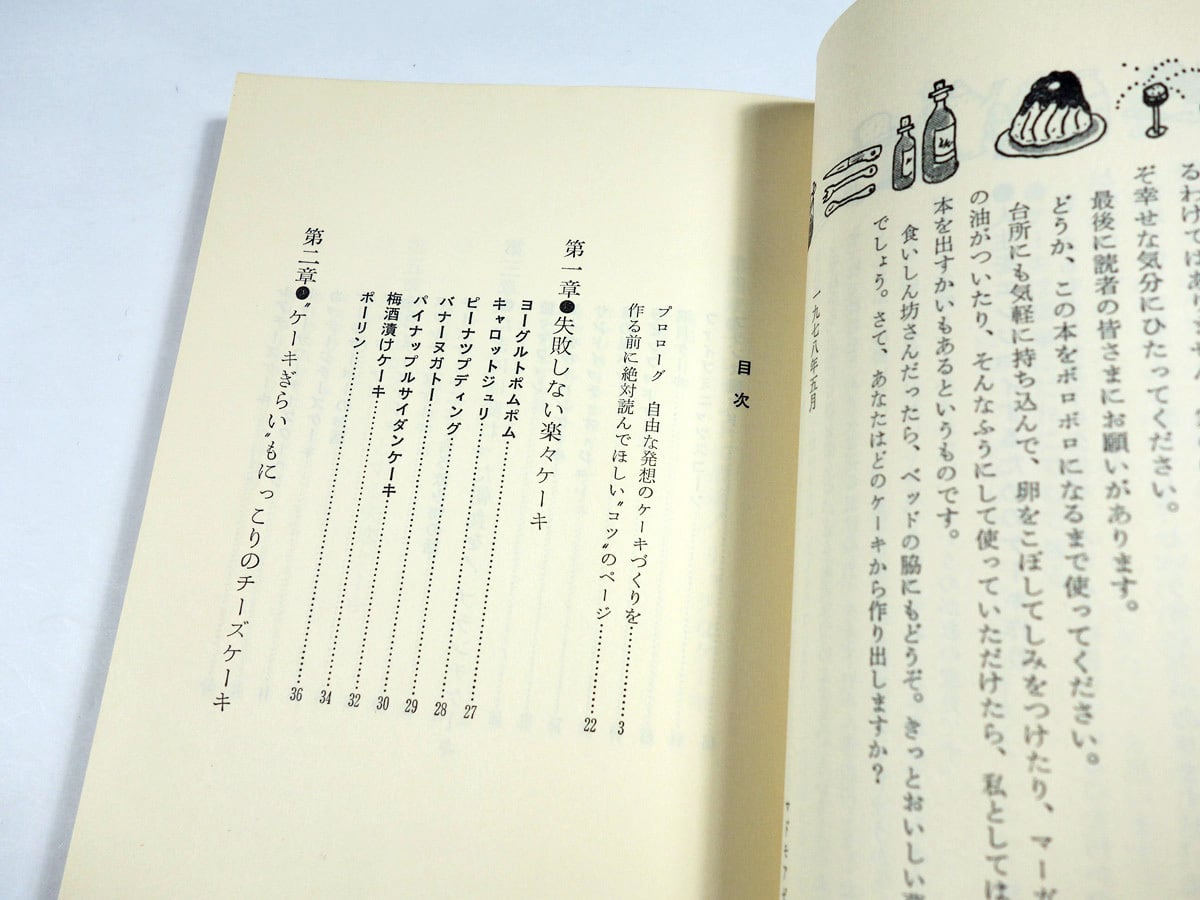 るわけではありません
ぞ幸せな気分にひたってください。
最後に読者の皆さまにお願いがあります。
どうか、この本をボロボロになるまで使ってください。
台所にも気軽に持ち込んで、卵をこぼしてしみをつけたり、マーガ
の油がついたり、そんなふうにして使っていただけたら、私としては
本を出すかいもあるというものです。
食いしん坊さんだったら、ベッドの脇にもどうぞ。きっとおいしい
でしょう。さて、あなたはどのケーキから作り出しますか?
一九七八年五月
マドモアゼ
目次
プロローグ 自由な発想のケーキづくりを……3
作る前に絶対読んでほしい〝コツ〟のページ……22
第一章●失敗しない楽々ケーキ
ヨーグルトポムポム……27
キャロットジュリ……28
ピーナツプディング……29
バナーヌガトー……30
パイナップルサイダンケーキ……32
梅酒漬けケーキ……34
ポーリン……36
第二章●〝ケーキぎらい〟もにっこりのチーズケーキ